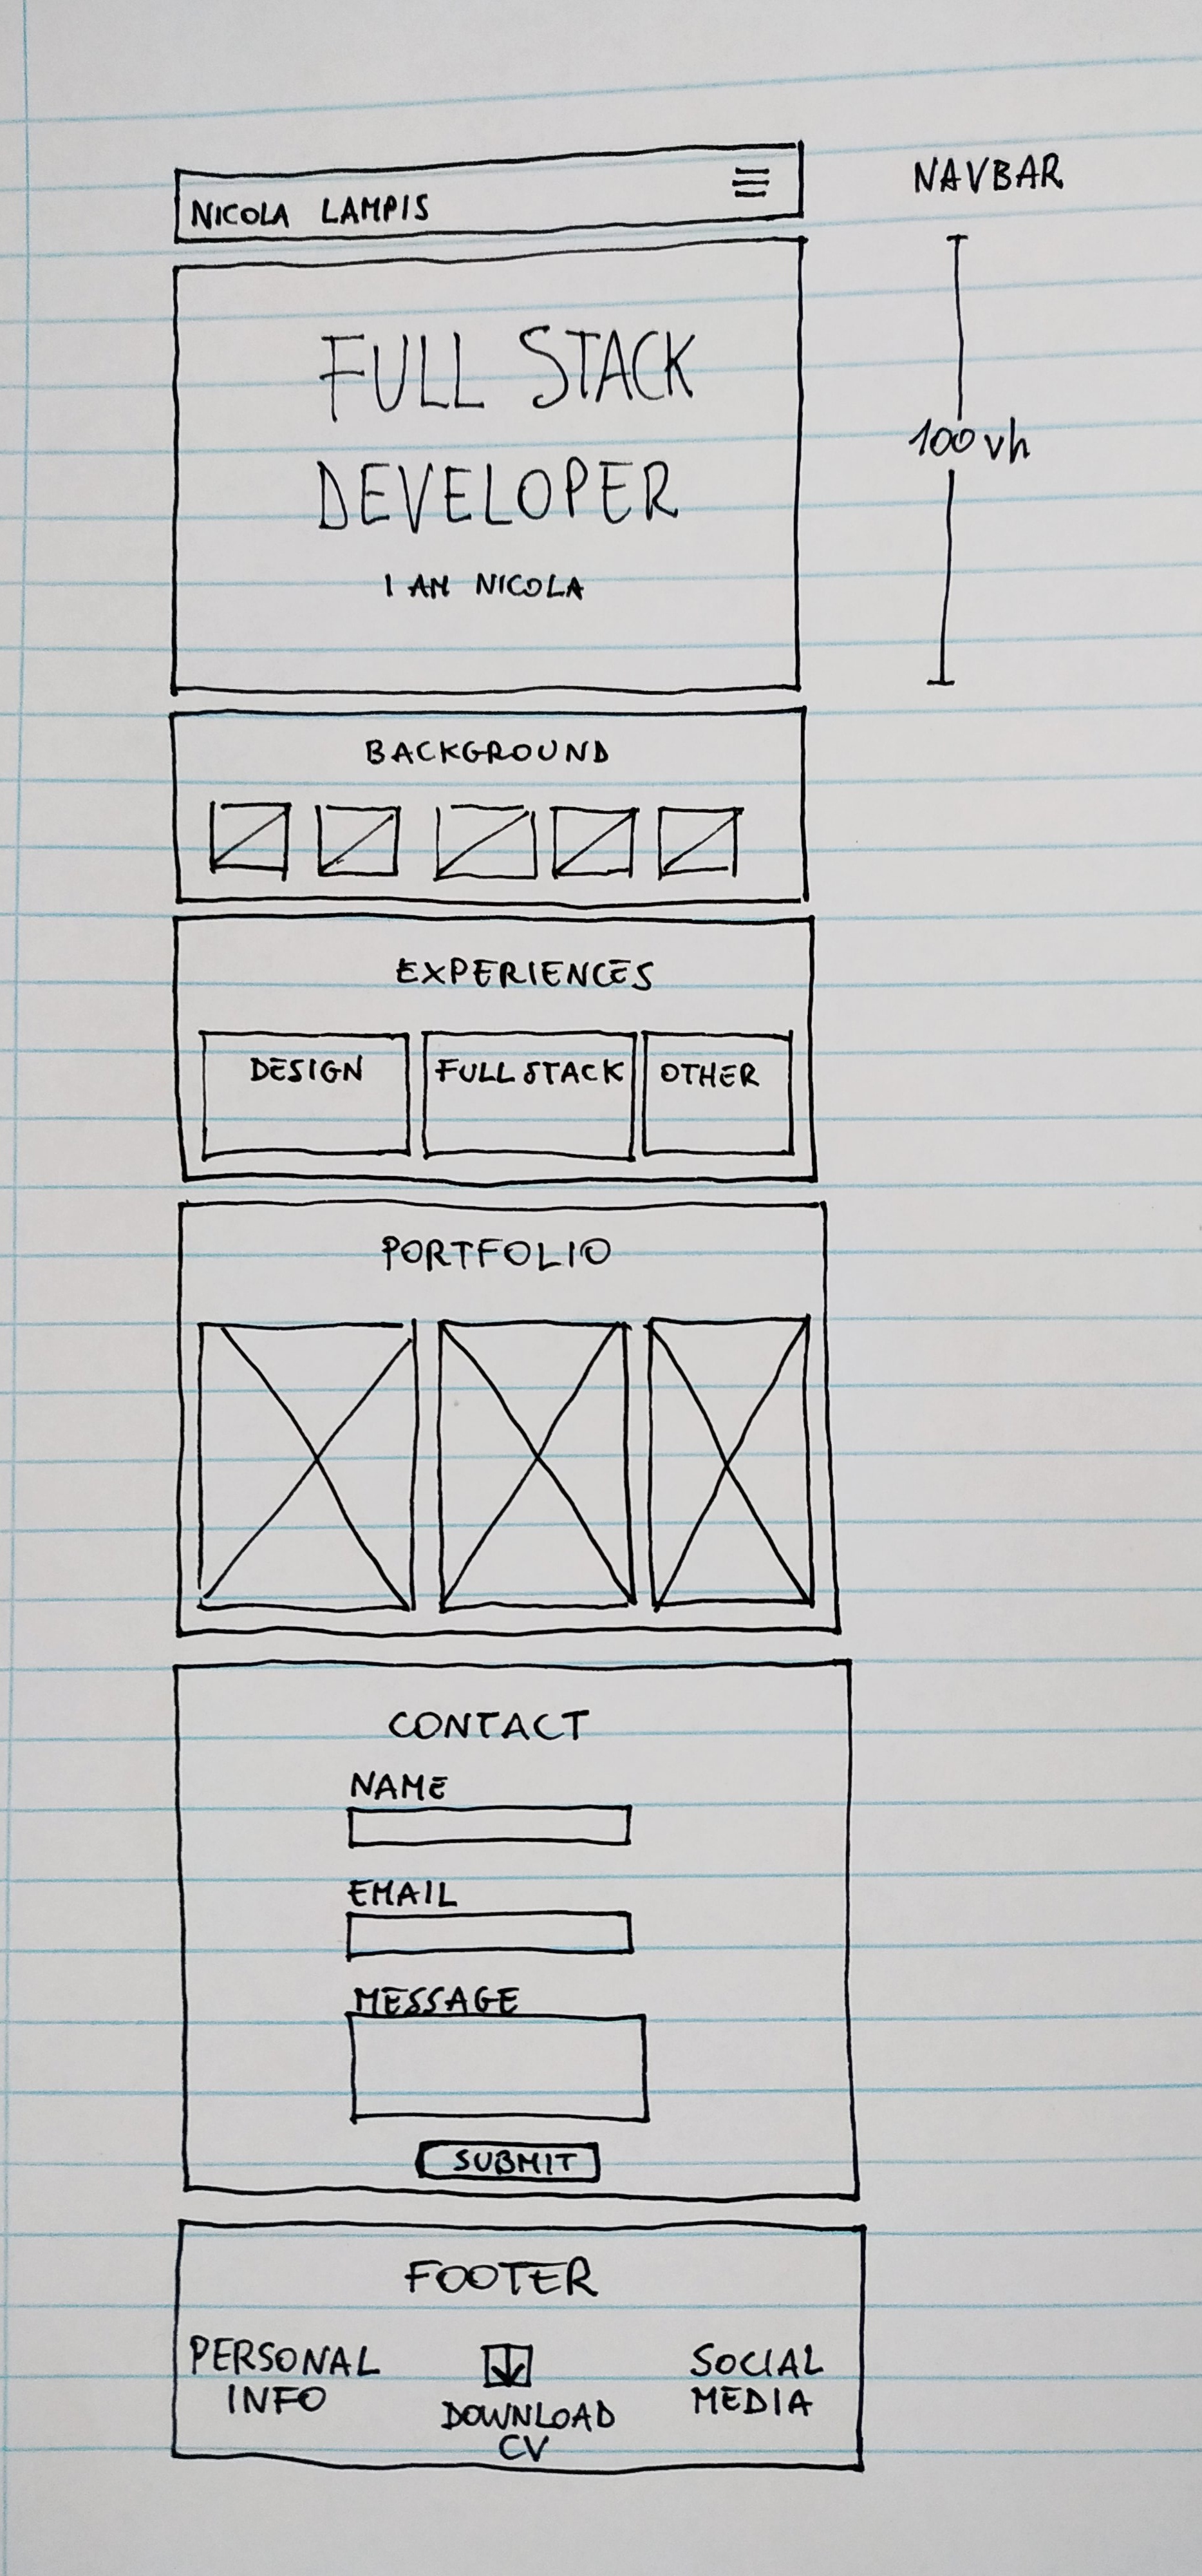 NICOLA LAMPIS
NAVBAR
FULL STACK
DEVELOPER
I AM NICOLA
100vh
BACKGROUND
EXPERIENCES
DESIGN
FULL STACK
OTHER
PORTFOLIO
CONTACT
NAME
EMAIL
MESSAGE
SUBMIT
FOOTER
PERSONAL
INFO
DOWNLOAD
CV
SOCIAL
MEDIA